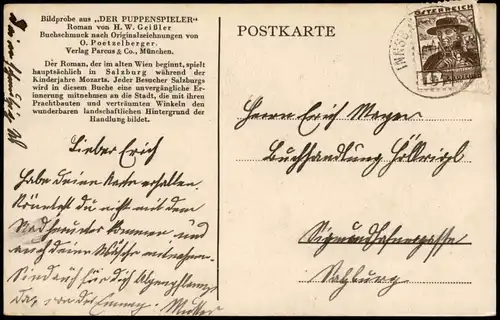 Bildprobe aus „DER PUPPENSPIELER"
Roman von H. W. Geißler
Buchschmuck nach Originalzeichnungen von
O. Poetzelberger.
Verlag Parcus & Co., München.
Der Roman, der im alten Wien beginnt, spielt
hauptsächlich in Salzburg während der
Kinderjahre Mozarts. Jeder Besucher Salzburgs
wird in diesem Buche eine unvergängliche Er-
innerung mitnehmen an die Stadt, die mit ihren
Prachtbauten und verträumten Winkeln den
wunderbaren landschaftlichen Hintergrund der
Handlung bildet.
Lieber Erich
Habe deine Karte erhalten.
Könntest du nicht mit dem
Rad herunter kommen und
auch deine Wäsche mitnehmen.
für dich
von der Mutter
POSTKARTE
ÖSTERREICH
INNSB
Herrn Erich Mayer
Buchhandlung Höllrigl
Sigmund Haffnergasse
Salzburg